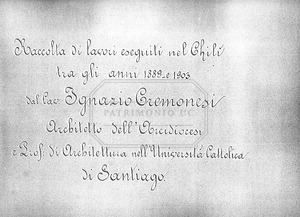 Raccolta di lavori eseguiti nel Chilì
tra gli anni 1889 e 1903
dal Cav. Ignazio Cremonesi
PATRIMONIO UC
Architetto dell'Arcidiocesi
e Prof. di Architettura nell'Università Cattolica
di Santiago.